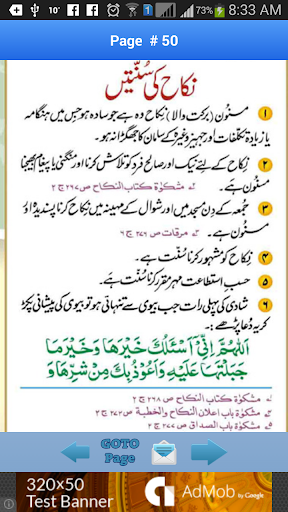 10°
8:33 AM
Page # 50
نکاح کی سُنّتیں
۱ مسنُون (برکت والا) نِکاح وہ ہے جو سادہ ہو جس میں ہنگامہ
یا زیادہ تکلفات اور جہیز وغیرہ کے سامان کا جھگڑا نہ ہو۔
۲ نِکاح کے لئے نیک اور صالح فرد کو تلاش کرنا اور منگنی یا پیغام بھیجنا
مسنُون ہے۔ ؎ مشکوٰۃ کتاب النکاح ص ۲۶۷ ج ۲
۳ جُمعہ کے دِن مسجد میں اور شوال کے مہینہ میں نکاح کرنا پسندیدہ اور
مسنُون ہے۔ ؎ مرقات ص ۲۷۶ ج ۶
۴ نِکاح کو مشہُور کرنا سُنّت ہے۔
۵ حسبِ استطاعت مہر مقرر کرنا سُنّت ہے۔
۶ شادی کی پہلی رات جب بیوی سے تنہائی ہو تو بیوی کی پیشانی پکڑ
کر یہ دُعا پڑھے:
اَللّٰهُمَّ اِنِّیْ اَسْئَلُكَ خَيْرَهَا وَخَيْرَ مَا
جَبَلْتَهَا عَلَيْهِ وَاَعُوْذُبِكَ مِنْ شَرِّهَا وَ
؎ مشکوٰۃ کتاب النکاح ص ۲۶۸ ج ۲
؎ مشکوٰۃ باب اعلان النکاح والخطبة ص ۲۷۲ ج ۲
؎ مشکوٰۃ باب الصداق ص ۲۷۷ ج ۲
GOTO
Page
320×50
Test Banner
AdMob by Google